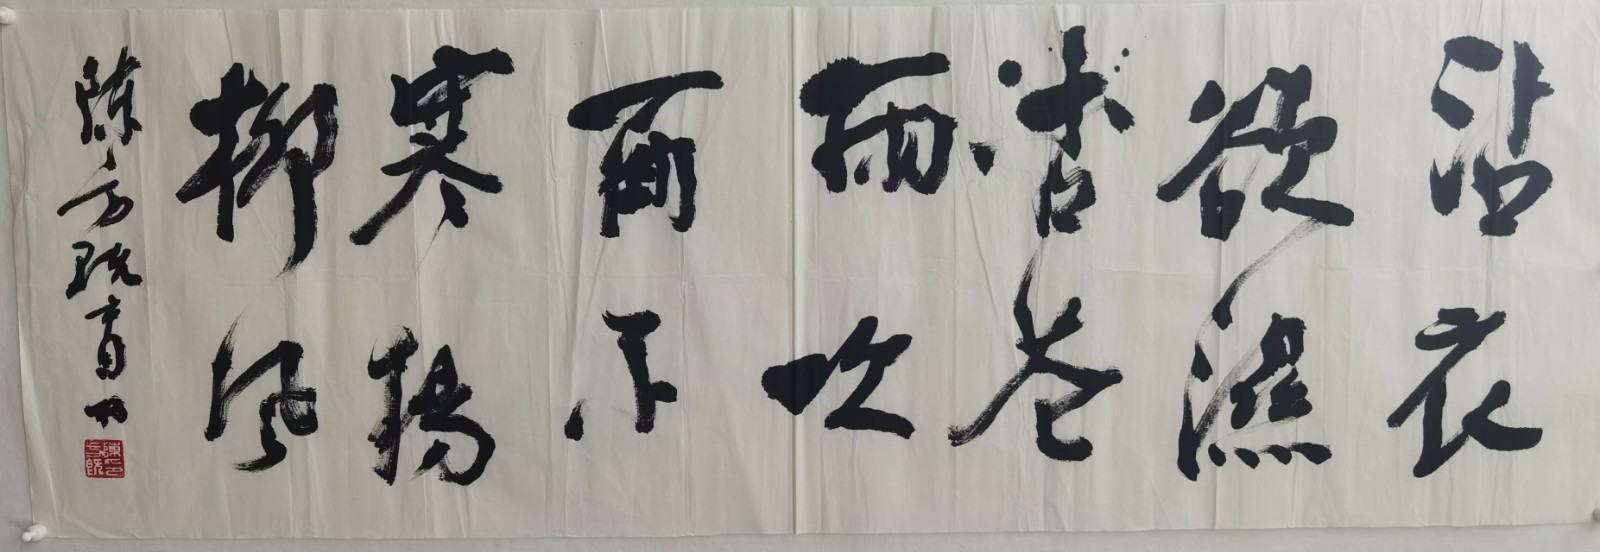 沾衣
欲濕
杏花
雨吹
面不
寒楊
柳風
陳方既
陳方既印